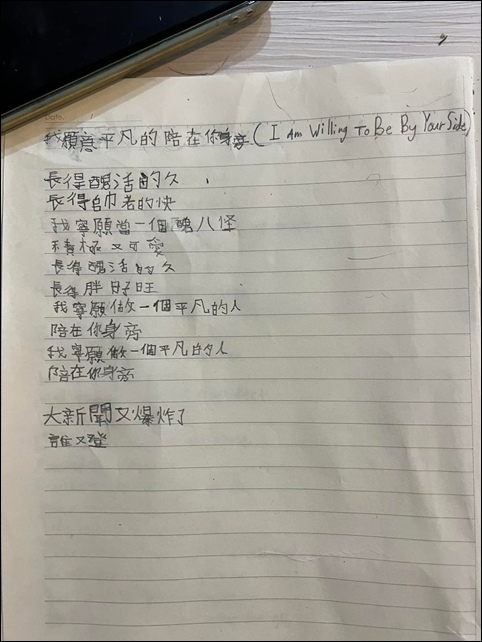 Date:
我願意平凡的陪在你身旁 (I Am Willing To Be By Your Side)
長得醜活的久
長得帥老的快
我寧願當一個醜八怪
積極又可愛
長得醜活的久
長得胖好旺
我寧願做一個平凡的人
陪在你身旁
我寧願做一個平凡的人
陪在你身旁
大新聞又爆炸了
誰又登